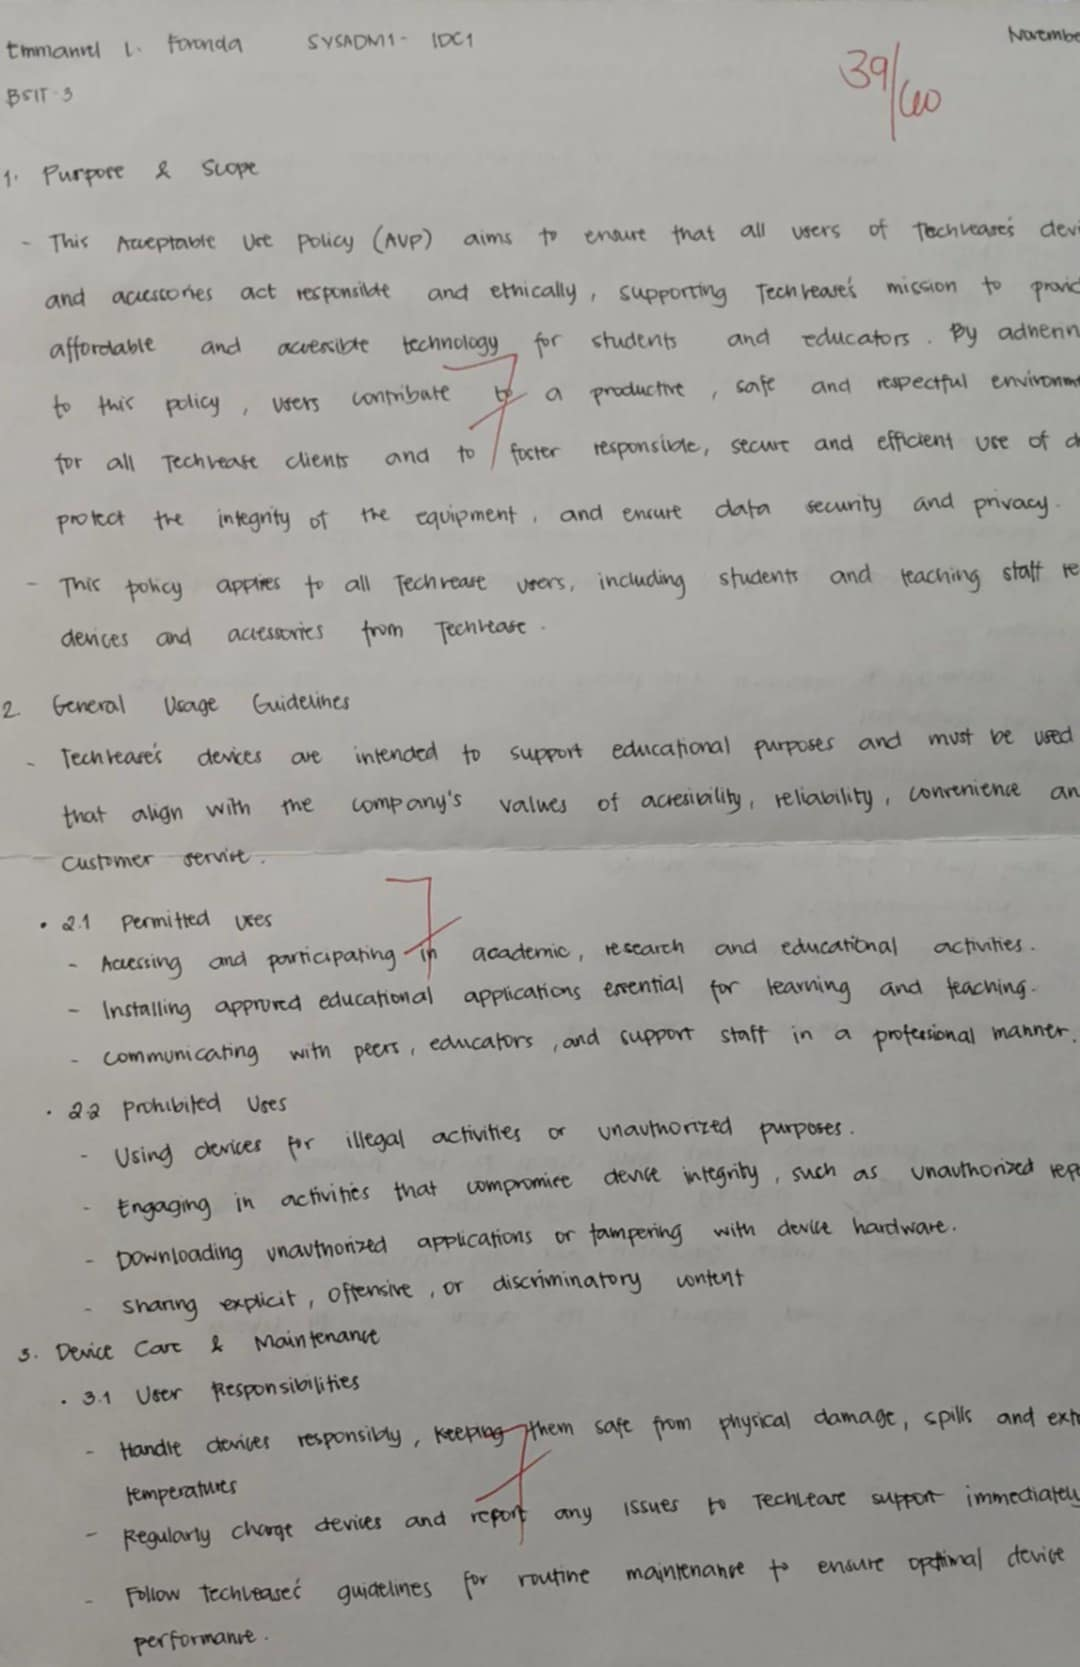 Emmanuel L. Foronda SYSADM1- IDC1
BSIT-3
39/60
1. Purpose & Scope
- This Acceptable Use Policy (AUP) aims to ensure that all users of TechLease's
and accessories act responsible and ethically, supporting TechLease's mission to
affordable and accessible technology for students and educators. By
to this policy, users contribute to a productive, safe and respectful
7
for all TechLease clients and to foster responsible, secure and efficient use of
protect the integrity of the equipment, and ensure data security and privacy.
- This policy applies to all TechLease users, including students and teaching staff
devices and accessories from TechLease.
2. General Usage Guidelines
- TechLease's devices are intended to support educational purposes and must be used
that align with the company's values of accesibility, reliability, convenience
customer service.
7
• 2.1 Permitted Uses
- Accessing and participating in academic, research and educational activities.
- Installing approved educational applications essential for learning and teaching.
- Communicating with peers, educators, and support staff in a professional manner.
• 2.2 Prohibited Uses
- Using devices for illegal activities or unauthorized purposes.
- Engaging in activities that compromise device integrity, such as unauthorized
- Downloading unauthorized applications or tampering with device hardware.
- Sharing explicit, offensive, or discriminatory content
3. Device Care & Maintenance
• 3.1 User Responsibilities
- Handle devices responsibly, keeping them safe from physical damage, spills and
7
temperatures
- Regularly charge devices and report any issues to TechLease support immediately
- Follow TechLease's guidelines for routine maintenance to ensure optimal device
performance.